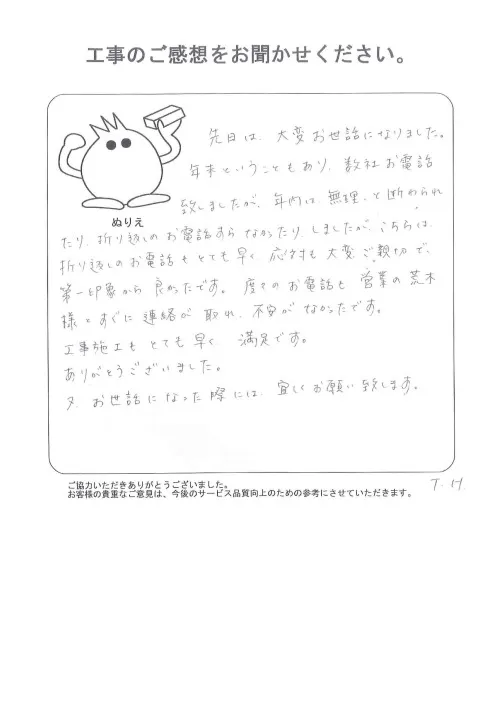 工事のご感想をお聞かせください。
先日は、大変お世話になりました。
年末ということもあり、数社お電話
致しましたが、年内は無理、と断わられ
たり、折り返しのお電話すらなかったり、しましたが、こちらは、
折り返しのお電話もとても早く、応対も大変ご親切で、
第一印象から良かったです。度々のお電話も営業の荒木
様とすぐに連絡が取れ、不安がなかったです。
工事施工もとても早く、満足です。
ありがとうございました。
又、お世話になった際には、宜しくお願い致します。
ぬりえ
ご協力いただきありがとうございました。
お客様の貴重なご意見は、今後のサービス品質向上のための参考にさせていただきます。
T.H.